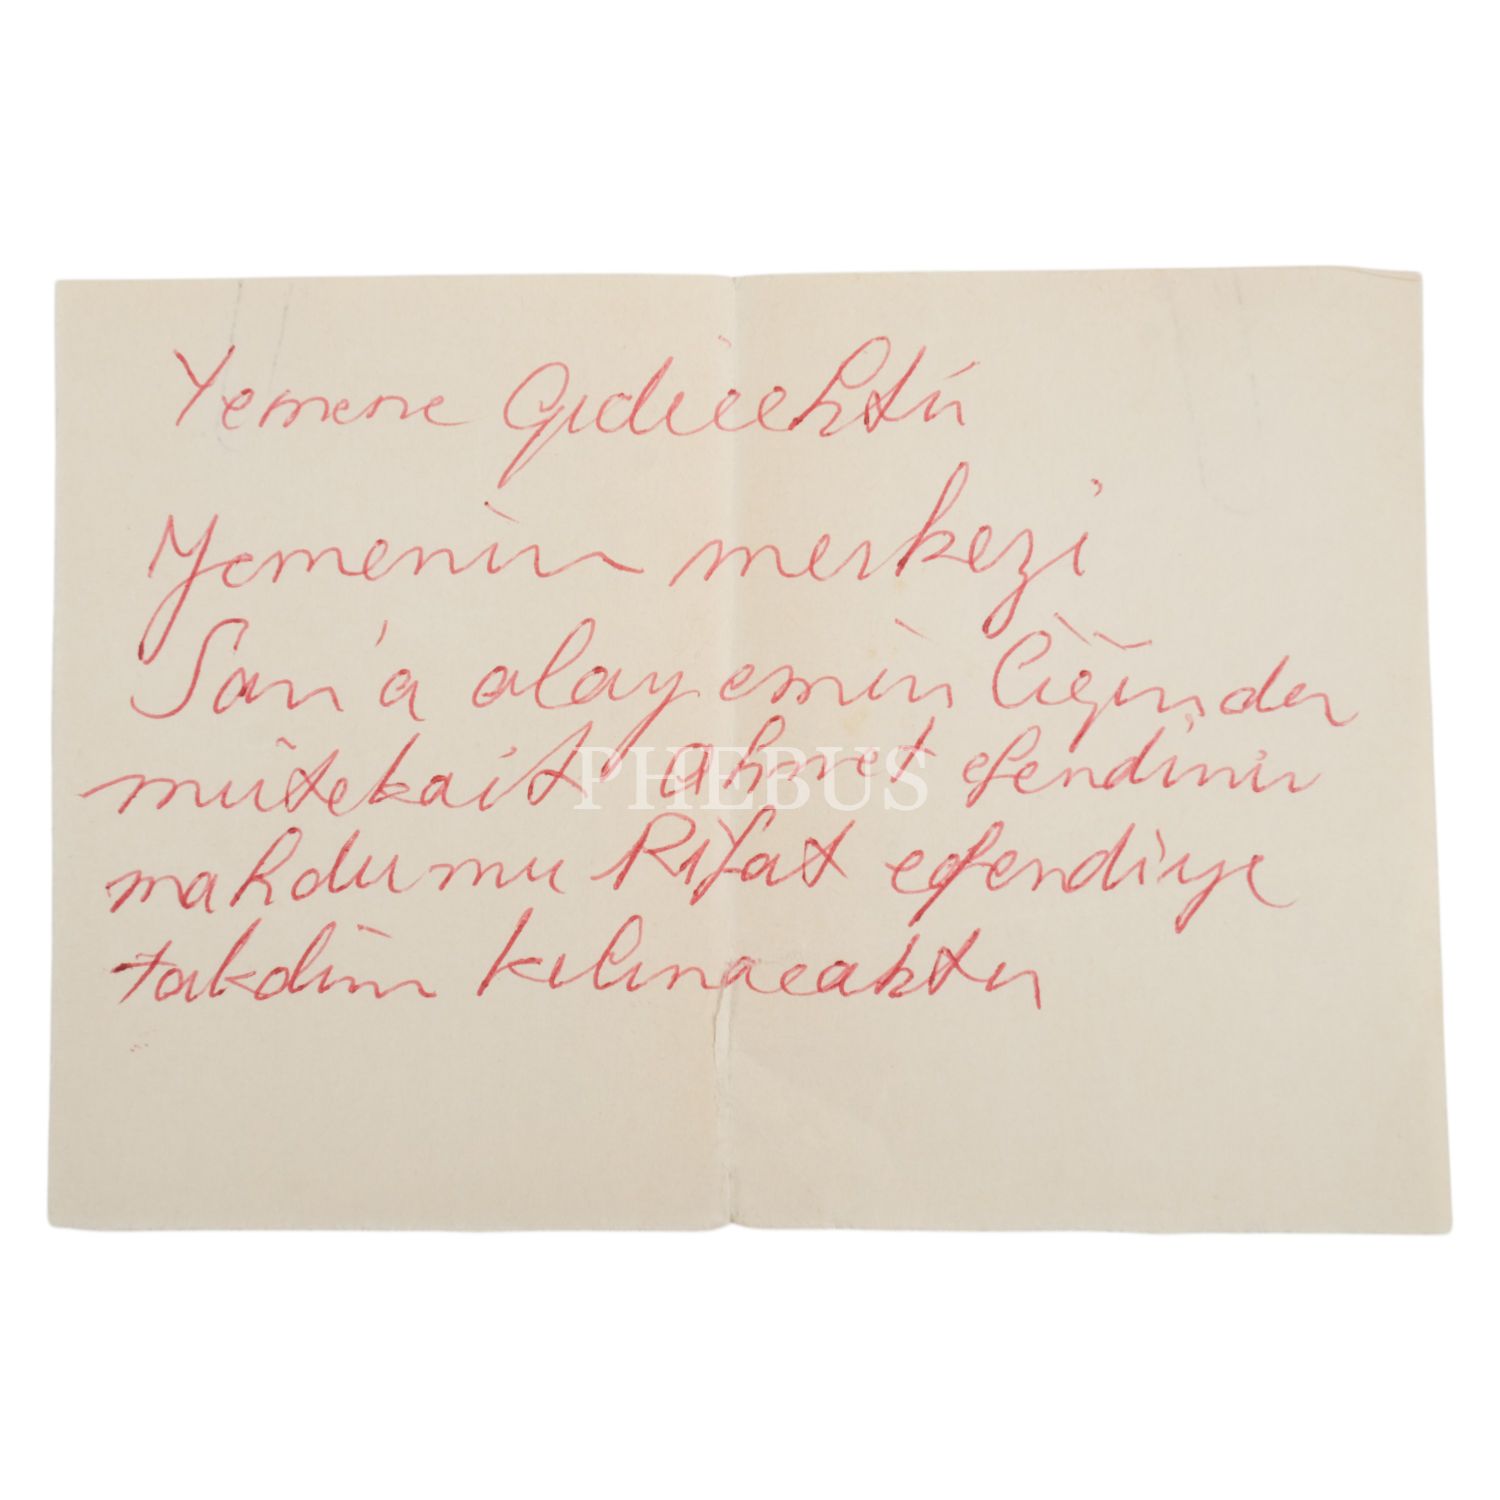 Yemene Gidecektir
Yemenin merkezi
San'a alay eminliğinden
mütekait ahmet efendinin
mahdumu Rifat efendiye
takdim kılınacaktır
PHEBUS